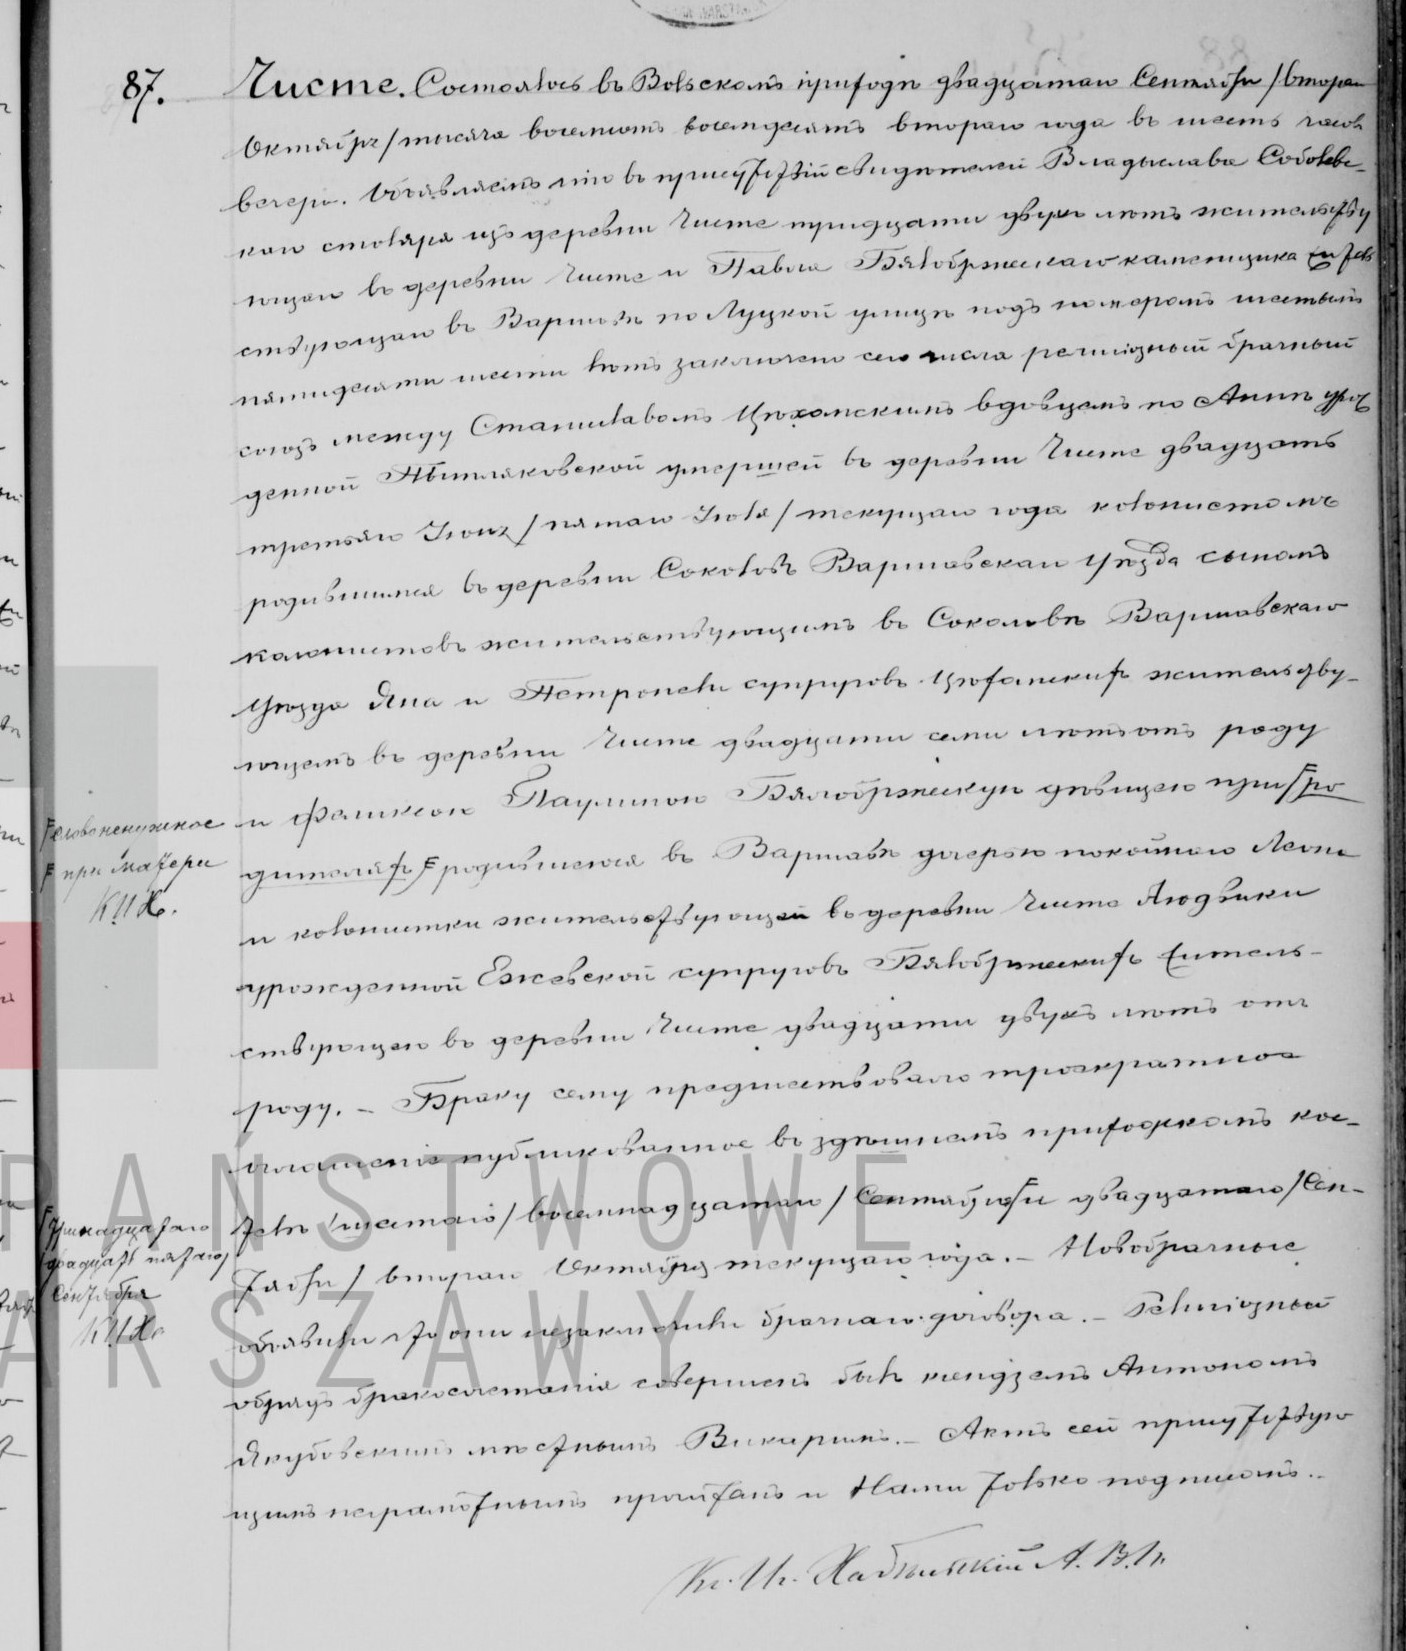 87.
Чисте. Состоялось въ Вольскомъ приходѣ двадцатаго Сентября /втораго
Октября/ тысяча восемьсотъ восемдесятъ втораго года въ шесть часовъ
вечера. Объявляемъ что въ присутствіи свидѣтелей Владыслава Соболев-
каго столяра изъ деревни Чисте тридцати двухъ лѣтъ жительству
ющаго въ деревни Чисте и Павла Бялобржескаго каменщика жительс
ствующаго въ Варшавѣ по Луцкой улицѣ подъ номеромъ шестымъ
пятидесяти шести лѣтъ заключенъ сего числа религіозный брачный
союзъ между Станиславомъ Цѣханскимъ вдовцемъ по Аннѣ урож
денной умершей въ деревни Чисте двадцать
третьяго Іюня /пятаго Іюля/ текущаго года колонистомъ
родившимся въ деревни Соколовъ Варшавскаго Уѣзда сыномъ
колонистовъ жительствующимъ въ Соколовѣ Варшавскаго
Уѣзда Яна и Петронели супруговъ Цѣханскихъ жительству-
ющемъ въ деревни Чисте двадцати семи лѣтъ отъ роду
и Феликсою Паулиною Бялобржескую дѣвицею при/ро
дителяхъ/ родившеюся въ Варшавѣ дочерью покойнаго Леона
и колонистки жительствующей въ деревни Чисте Людвики
урожденной Ежевской супруговъ Бялобржескихъ жительь-
ствующею въ деревни Чисте двадцати двухъ лѣтъ отъ
роду. – Браку сему предшествовало троекратное
оглашеніе публикованное въ здѣшнемъ приходскомъ кос-
телѣ шестаго /восемнадцатаго/ Сентября и двадцатаго /Сен-
тября/ втораго Октября текущаго года. – Новобрачные
объявили что они незаключили брачнаго договора. – Религіозный
обрядъ бракосочетанія совершенъ былъ ксендземъ Антономъ
Якубовскимъ мѣстнымъ Викаріемъ. – Актъ сей присутствую
щимъ неграмотнымъ прочитанъ и Нами только подписанъ. –
слово ненужное
при матери
К.И.Х.
тринадцатаго
/двадцать пятаго/
Сентября
К.И.Х.
PAŃSTWOWE
ARSZAWY